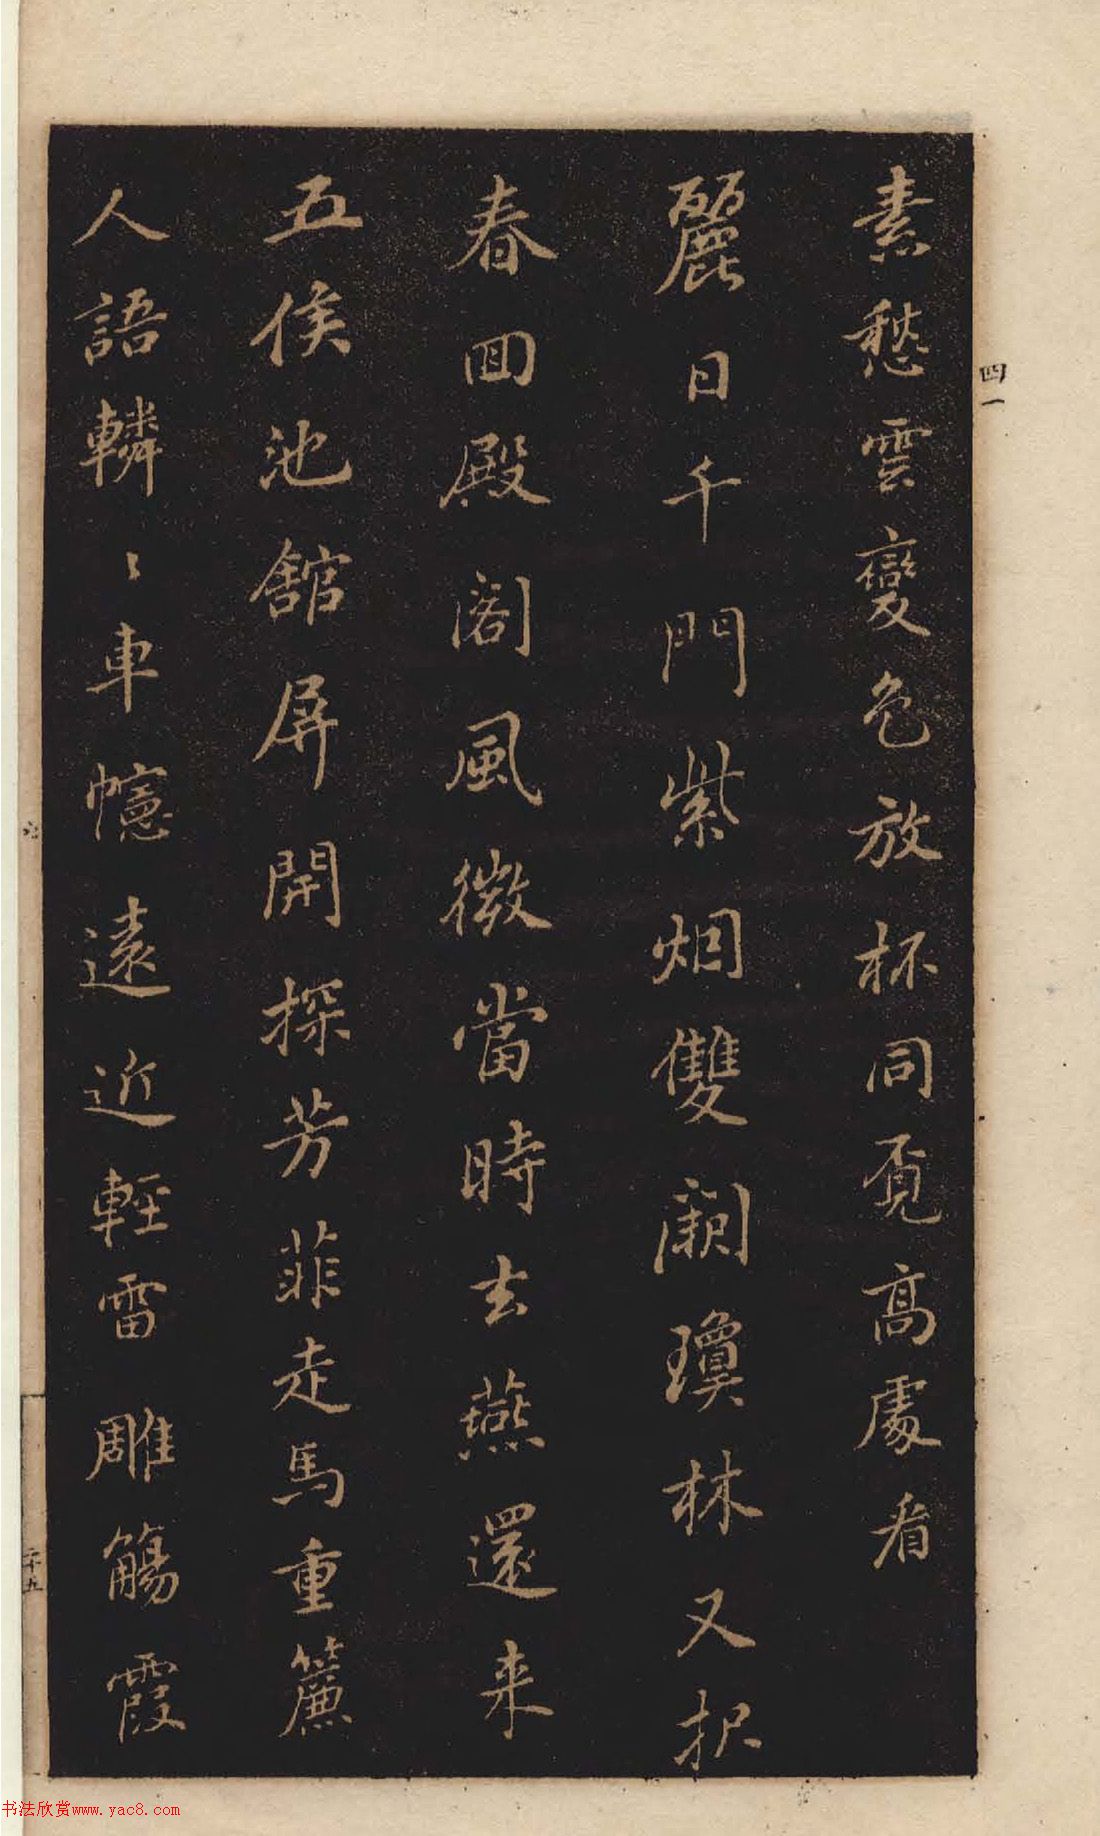 素愁雲變色放杯同覔高處看
麗日千門紫烟雙闕瓊林又報
春回殿閣風微當時去燕還来
五侯池館屏開探芳菲走馬重簾
人語轔〻車幰遠近輕雷雕觴霞
四一
二十五
书法欣赏www.yac8.com